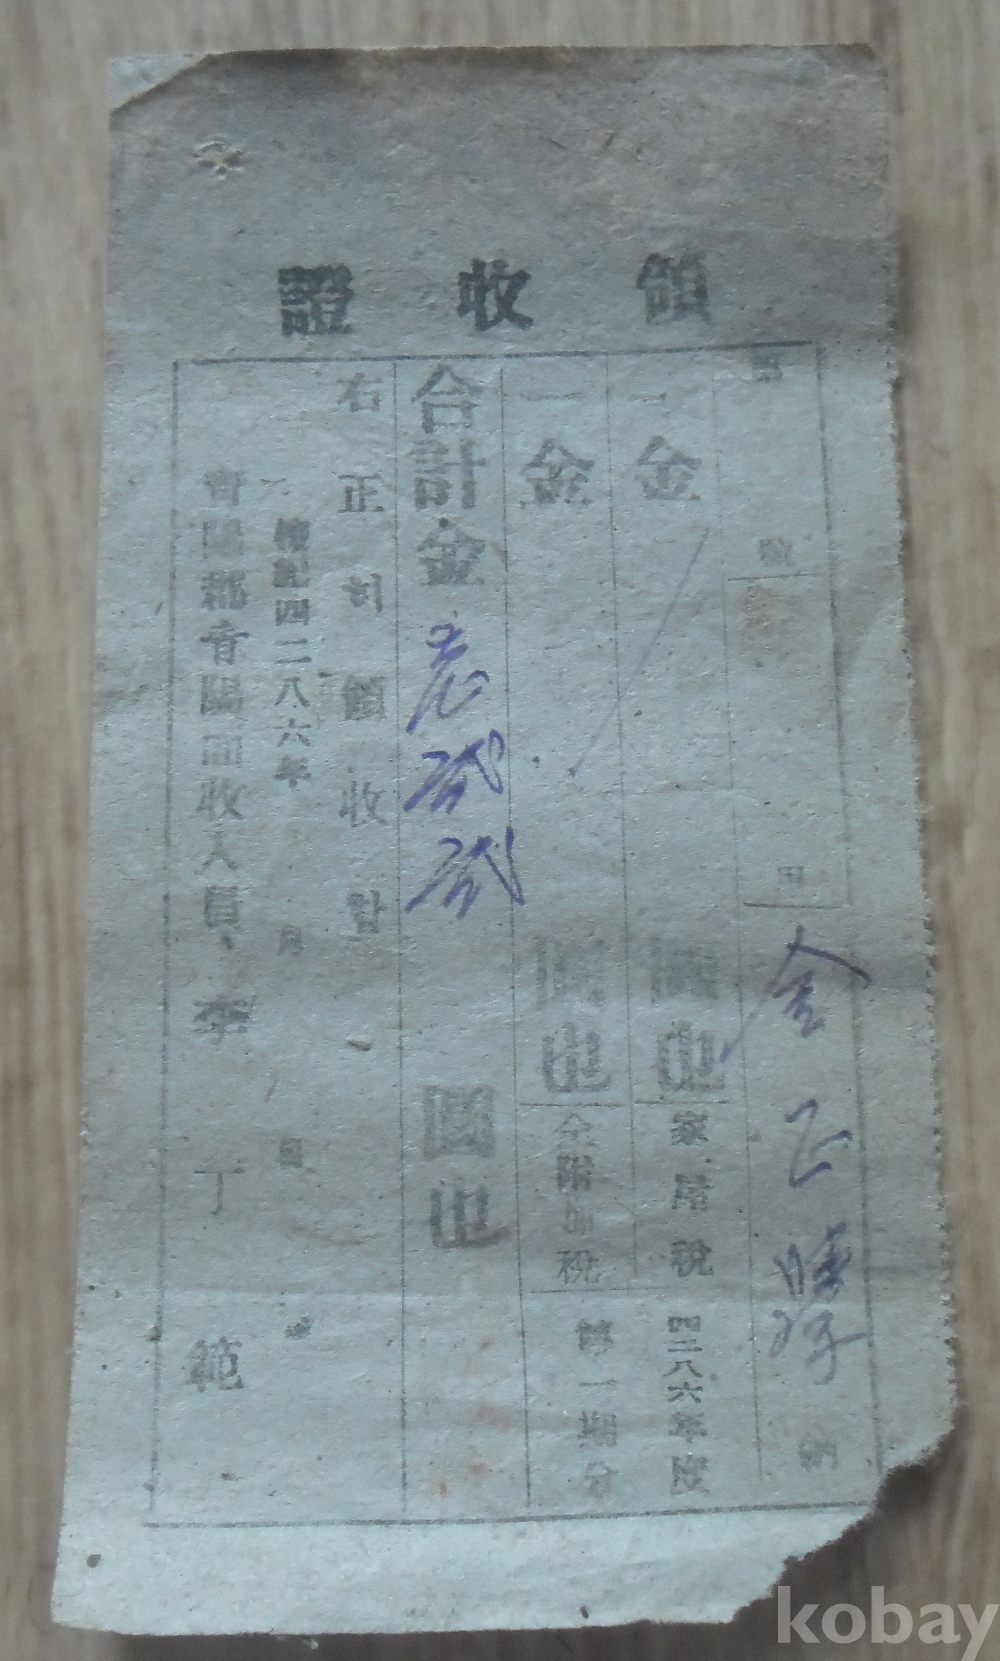 領收證
號
金正
納
一金 圓也 家屋稅 四二八六年度
一金 圓也 仝附加稅 第一期分
合計金 壱弐弐 圓也
右正히領收함
檀紀四二八六年 月 日
靑陽郡靑陽面收入員 李丁範
kobay